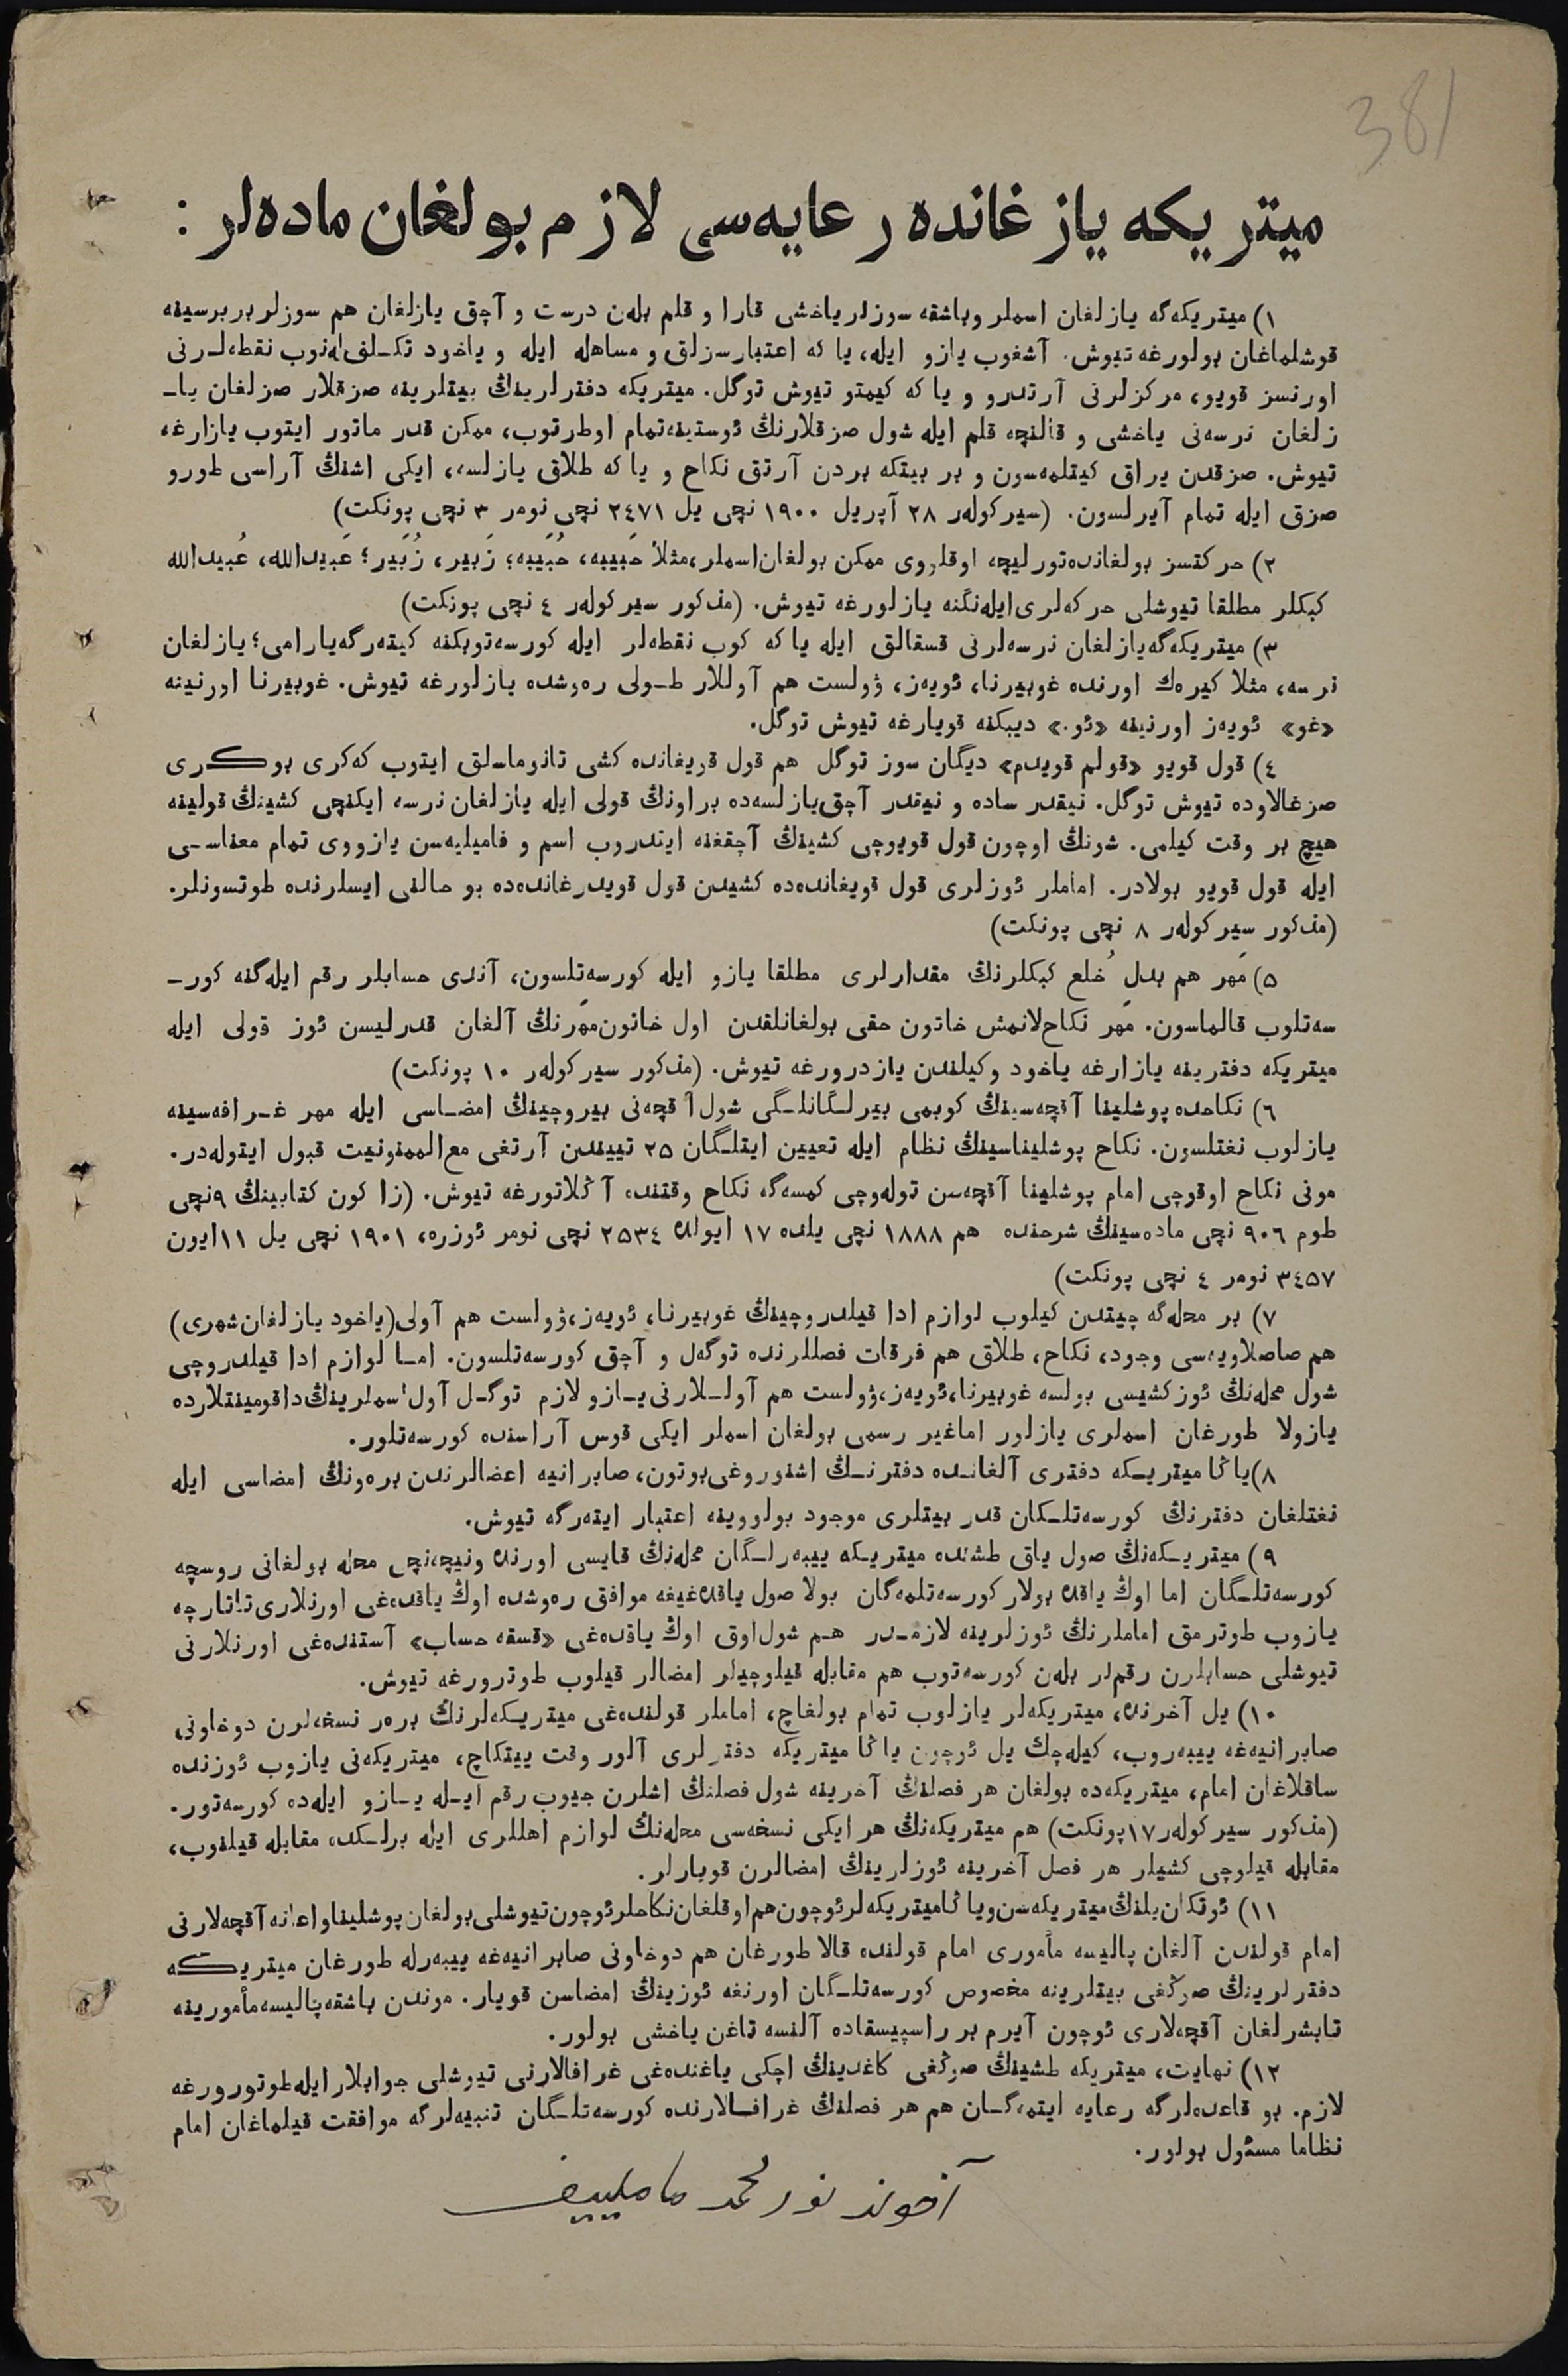 381
ميتريكه يازغانده رعايه‌سى لازم بولغان ماده‌لر :
١) ميتريكه‌گه يازلغان اسملر وباشقه سوزلر ياخشى قارا و قلم بلەن درست و آچق يازلغان هم سوزلر بربرسينه
قوشلماغان بولورغه تيوش. آشغوب يازو ايله، يا كه اعتبارسزلق و مساهله ايله و ياخود تكـلف‌لەنوب نقطه‌لـرنى
اورنسز قويو، مركزلرنى آرتدرو و يا كه كيمتو تيوش توگل. ميتريكه دفترلرينڭ بيتلرينه صزقلار صزلغان ياـ
زلغان نرسه‌نى ياخشى و قالنچه قلم ايله شول صزقلارنڭ ئوستينه‌تمام اوطرتوب، ممكن قدر ماتور ايتوب يازارغه
تيوش. صزقدن يراق كيتلمه‌سون و بر بيتكه بردن آرتق نكاح و يا كه طلاق يازلسه، ايكى اشنڭ آراسى طورو
صزق ايله تمام آيرلسون. (سيركولەر ٢٨ آپريل ١٩٠٠ نچى يل ٢٤٧١ نچى نومر ٣ نچى پونكت)
٢) حركتسز بولغانده‌تورليچه اوقلووى ممكن بولغان‌اسملر،مثلا حَبيبه، حُبَيبه؛ زَبير، زُبَير؛ عَبيدالله، عُبيدالله
كبكلر مطلقا تيوشلى حركه‌لرى‌ايله‌نگنه يازلورغه تيوش. (مذكور سيركولەر ٤ نچى پونكت)
٣) ميتريكه‌گه‌يازلغان نرسه‌لرنى قسقالق ايله يا كه كوب نقطه‌لر ايله كورسه‌توبكنه كيتەرگه‌يارامى؛ يازلغان
نرسه، مثلا كيره‌ك اورنده غوبيرنا، ئويەز، ۋولست هم آوللار طـولى ره‌وشده يازلورغه تيوش. غوبيرنا اورنينه
«غو» ئويەز اورنينه «ئو.» ديبكنه قويارغه تيوش توگل.
٤) قول قويو «قولم قويدم» ديگان سوز توگل هم قول قويغانده كشى تانوماسلق ايتوب كەكرى بوكـرى
صزغالاوده تيوش توگل. نيقدر ساده و نيقدر آچق‌يازلسه‌ده براونڭ قولى ايله يازلغان نرسه ايكنچى كشينڭ قولينه
هيچ بر وقت كيلمى. شونڭ اوچون قول قويوچى كشينڭ آچقغنه ايتدروب اسم و فاميليه‌سن يازووى تمام معناسـى
ايله قول قويو بولادر. اماملر ئوزلرى قول قويغانده‌ده كشيدن قول قويدرغانده‌ده بو حالنى ايسلرنده طوتسونلر.
(مذكور سيركولەر ٨ نچى پونكت)
٥) مَهر هم بدلِ خُلع كبكلرنڭ مقدارلرى مطلقا يازو ايله كورسه‌تلسون، آندى حسابلر رقم ايله‌گنه كورـ
سه‌تلوب قالماسون. مَهر نكاح‌لانمش خاتون حقى بولغانلقدن اول خاتون‌مهرنڭ آلغان قدرليسن ئوز قولى ايله
ميتريكه دفترينه يازارغه ياخود وكيلندن يازدرورغه تيوش. (مذكور سيركولەر ١٠ پونكت)
٦) نكاحده پوشلينا آقچه‌سينڭ كوبمى بيرلـگانلـگى شول آقچه‌نى بيروچينڭ امضـاسى ايله مهر غـرافه‌سينه
يازلوب نغتلسون. نكاح پوشليناسينڭ نظام ايله تعيين ايتلـگان ٢٥ تييندن آرتغى مع‌الممنونيت قبول ايتولەدر.
مونى نكاح اوقوچى امام پوشلينا آقچه‌سن تولەوچى كمسه‌گه نكاح وقتنده آڭلاتورغه تيوش. (زاكون كتابينڭ ٩نچى
طوم ٩٠٦ نچى ماده‌سينڭ شرحنده هم ١٨٨٨ نچى يلده ١٧ ايولده ٢٥٣٤ نچى نومر ئوزره، ١٩٠١ نچى يل ١١ايون
٣٤٥٧ نومر ٤ نچى پونكت)
٧) بر محله‌گه چيتدن كيلوب لوازم ادا قيلدروچينڭ غوبيرنا، ئويەز،ۋولست هم آولى(ياخود يازلغان‌شهرى)
هم صاصلاويه‌سى وجود، نكاح، طلاق هم فرقات فصللرنده توگه‌ل و آچق كورسه‌تلسون. امـا لوازم ادا قيلدروچى
شول محله‌نڭ ئوز كشيسى بولسه غوبيرنا،ئويەز،ۋولست هم آولـلارنى‌يـازو لازم توگـل آول اسملرينڭ‌داقومينتلارده
يازولا طورغان اسملرى يازلور اماغير رسمى بولغان اسملر ايكى قوس آراسنده كورسه‌تلور.
٨)ياڭا ميتريـكه دفترى آلغانـده دفترنـڭ اشنوروغى‌بوتون، صابرانيه اعضالرندن بره‌ونڭ امضاسى ايله
نغتلغان دفترنڭ كورسه‌تلـكان قدر بيتلرى موجود بولووينه اعتبار ايتەرگه تيوش.
٩) ميتريـكه‌نڭ صول ياق طشنده ميتريـكه ييبەرلـگان محله‌نڭ قايسى اورنده ونيچه‌نچى محله بولغانى روسچه
كورسه‌تلـگان اما اوڭ ياقده بولار كورسه‌تلمه‌گان بولا صول ياقده‌غيغه موافق ره‌وشده اوڭ ياقده‌غى اورنلارى‌تاتارچه
يازوب طوترمق اماملرنڭ ئوزلرينه لازمـدر هـم شول‌اوق اوڭ ياقده‌غى «قسقه حساب» آستنده‌غى اورنلارنى
تيوشلى حسابلرن رقم‌لر بلەن كورسه‌توب هم مقابله قيلوچيلر امضالر قيلوب طوترورغه تيوش.
١٠) يل آخرنده، ميتريكه‌لر يازلوب تمام بولغاچ، اماملر قولنده‌غى ميتريـكه‌لرنڭ برەر نسخه‌لرن دوخاونى
صابرانيه‌غه ييبەروب، كيله‌چك يل ئوچون ياڭا ميتريكه دفترلرى آلور وقت ييتكاچ، ميتريكه‌نى يازوب ئوزنده
ساقلاغان امام، ميتريكه‌ده بولغان هر فصلنڭ آخرينه شول فصلنڭ اشلرن جيوب رقم ايـله يـازو ايله‌ده كورسه‌تور.
(مذكور سيركولەر ١٧پونكت) هم ميتريكه‌نڭ هر ايكى نسخه‌سى محله‌نڭ لوازم اهللرى ايله برلـكده مقابله قيلنوب،
مقابله قيلوچى كشيلر هر فصل آخرينه ئوزلرينڭ امضالرن قويارلر.
١١) ئوتكان‌يلنڭ‌ميتريكه‌سن‌وياڭاميتريكه‌لرئوچون‌هم‌اوقلغان‌نكاحلرئوچون‌تيوشلى‌بولغان‌پوشليناواعانه‌آقچه‌لارنى
امام قولندن آلغان پاليسه مأمورى امام قولنده قالا طورغان هم دوخاونى صابرانيه‌غه ييبەرله طورغان ميتريـكه
دفترلرينڭ صوڭغى بيتلرينه مخصوص كورسه‌تلـگان اورنغه ئوزينڭ امضاسن قويار. موندن باشقه‌پاليسه‌مأمورينه
تابشرلغان آقچه‌لارى ئوچون آيرم بر راسپيسقاده آلنسه تاغن ياخشى بولور.
١٢) نهايت، ميتريكه طشينڭ صوڭغى كاغدينڭ اچكى ياغنده‌غى غرافالارنى تيوشلى جوابلار ايله طوتورورغه
لازم. بو قاعده‌لرگه رعايه ايتمه‌گـان هم هر فصلنڭ غرافـالارنده كورسه‌تلـگان تنبيه‌لرگه موافقت قيلماغان امام
نظاما مسئول بولور.
آخوند نورمحمد ماملييف